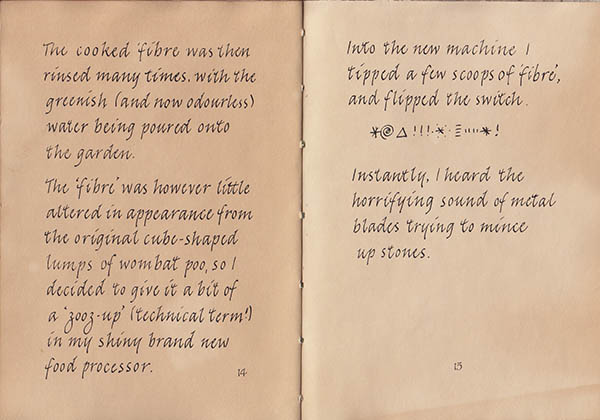 The cooked 'fibre' was then
rinsed many times, with the
greenish (and now odourless)
water being poured onto
the garden.
The 'fibre' was however little
altered in appearance from
the original cube-shaped
lumps of wombat poo, so I
decided to give it a bit of
a 'zooz-up' (technical term!)
in my shiny brand new
food processor.
14
Into the new machine I
tipped a few scoops of 'fibre',
and flipped the switch.
Instantly, I heard the
horrifying sound of metal
blades trying to mince
up stones.
15